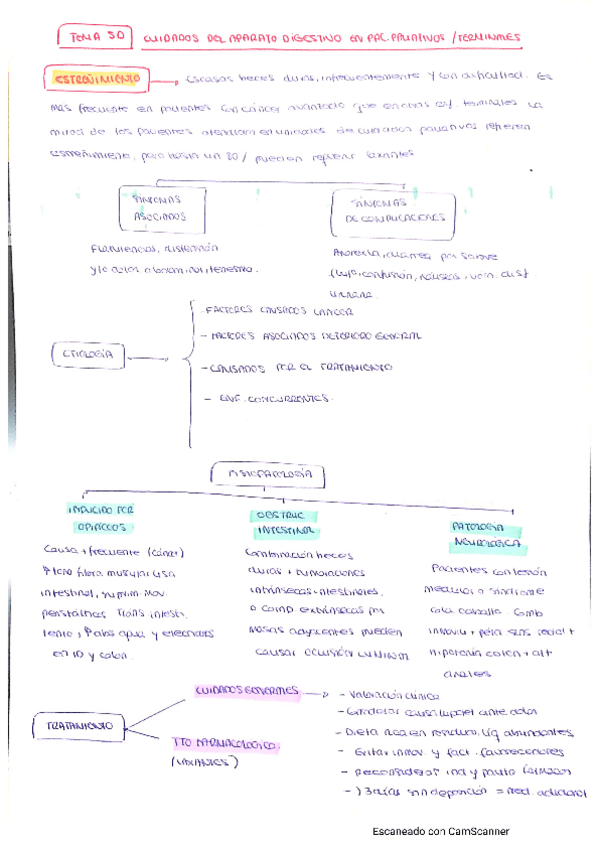 TEMA 50 CUIDADOS DEL APARATO DIGESTIVO EN PAC. PALIATIVOS / TERMINALES
ESTREÑIMIENTO → Escasas heces duras, infrecuentemente y con dificultad. Es
más frecuente en pacientes con cáncer avanzado que en otras enf. terminales. La
mitad de los pacientes atendidos en unidades de cuidados paliativos refieren
estreñimiento, pero hasta un 80% pueden requerir laxantes
SÍNTOMAS
ASOCIADOS
SÍNTOMAS
DE COMPLICACIONES
Flatulencias, distensión
y/o dolor abdominal, tenesmo.
Anorexia, diarrea por
confusión, náuseas, vom. disf.
urinaria.
ETIOLOGÍA →
- FACTORES CAUSADOS CANCER
- FACTORES ASOCIADOS DETERIORO GENERAL
- CAUSADOS POR EL TRATAMIENTO
- ENF. CONCURRENTES.
FISIOPATOLOGÍA
INDUCIDO POR
OPIACEOS
OBSTRUC.
INTESTINAL
PATOLOGIA
NEUROLOGICA
Causa + frecuente (cáncer)
↑ tono fibra muscular lisa
intestinal, suprim. mov.
peristálticos. Tráns. intest.
lento, ↑ abs agua y electrolitos
en ID y colon.
Combinación heces
duras + tumoraciones
intrínsecas intestinales,
o comp extrínsecas por
masas adyacentes pueden
causar oclusión
Pacientes con lesión
medular o síndrome
cola caballo. Comb
inmov + perd sens rectal +
hipotonía colon + alt
anales
TRATAMIENTO
CUIDADOS GENERALES →
TTO FARMACOLOGICO:
(LAXANTES)
- Valoración clínica
- Considerar causa
- Dieta rica en residuos, líq abundantes
- Evitar inmov. y fact. favorecedores
- Reconsiderar ind y pauta fármacos
- > 3 días sin deposición = med. adicional
Escaneado con CamScanner